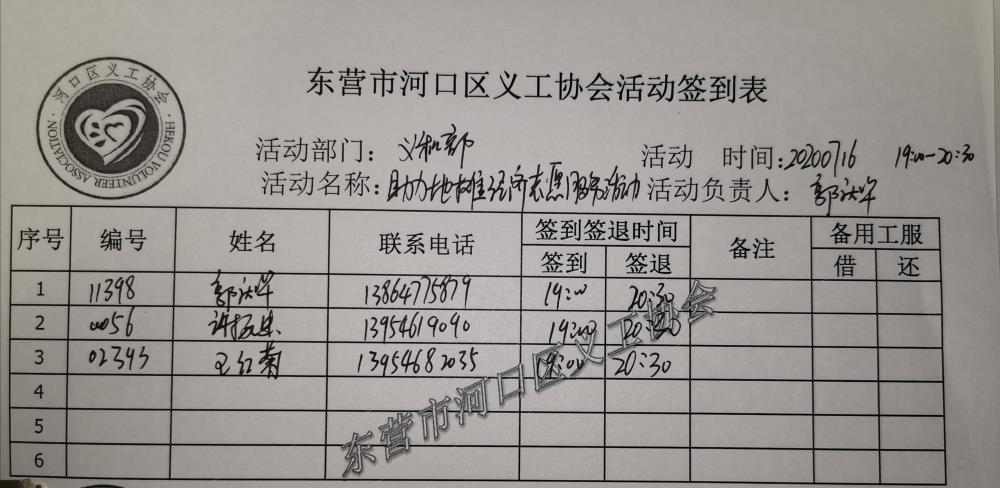 东营市河口区义工协会活动签到表
河口区义工协会
HEKOU VOLUNTEER ASSOCIATION
活动部门：义和部 活动 时间：20200716 19:00-20:30
活动名称：助力地摊经济志愿服务活动 活动负责人：郭
序号 编号 姓名 联系电话 签到签退时间 备注 备用工服
签到 签退 借 还
1 11398 郭 13864775879 19:00 20:30
2 0056 许振忠 13954619090 19:00 20:30
3 02393 王红菊 13954682035 19:00 20:30
4
5
6
东营市河口区义工协会